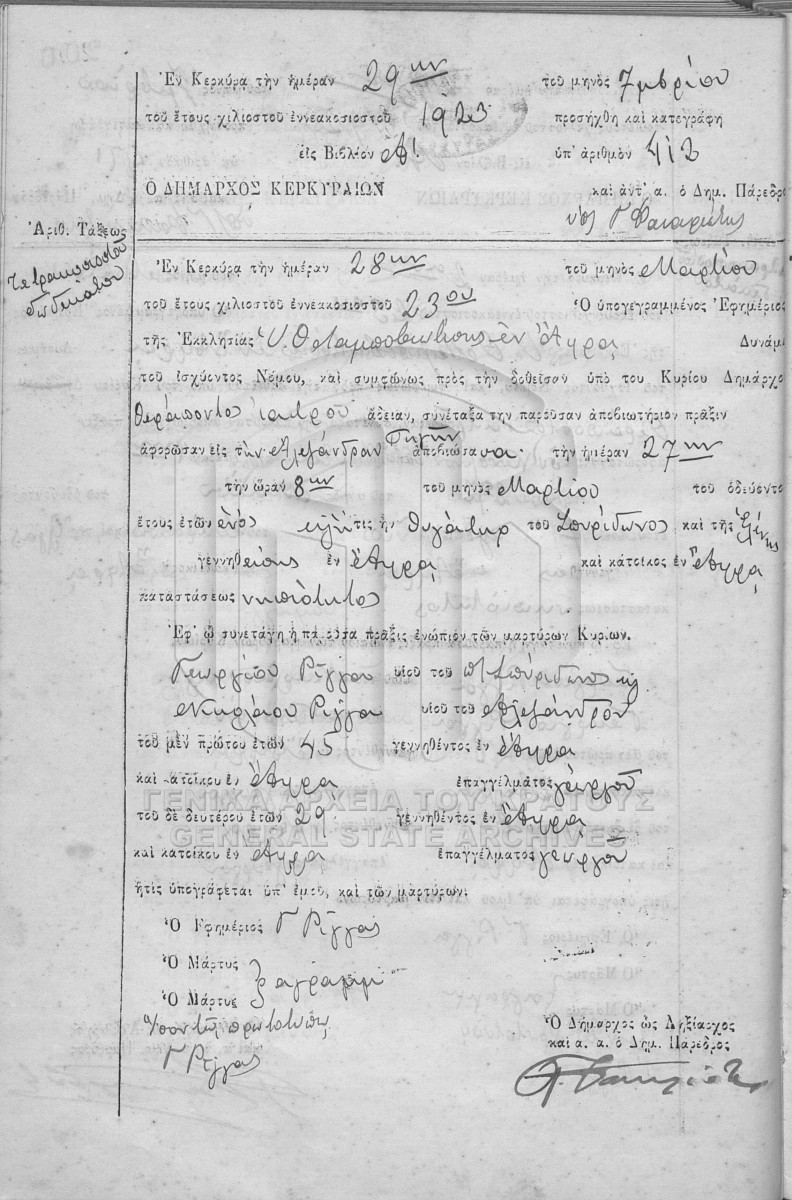 Ἐν Κερκύρᾳ τὴν ἡμέραν 29ην τοῦ μηνὸς 7μβρίου
τοῦ ἔτους χιλιοστοῦ ἐννεακοσιοστοῦ 1923 προσήχθη καὶ κατεγράφη
εἰς Βιβλίον Α'. ὑπ' ἀριθμὸν 412
Ὁ ΔΗΜΑΡΧΟΣ ΚΕΡΚΥΡΑΙΩΝ καὶ ἀντ' α. ὁ Δημ. Πάρεδρο
Ἀριθ. Τάξεως
τετρακοσιοστὸν
δωδέκατον
Ἐν Κερκύρᾳ τὴν ἡμέραν 28ην τοῦ μηνὸς Μαρτίου
τοῦ ἔτους χιλιοστοῦ ἐννεακοσιοστοῦ 23ου Ὁ ὑπογεγραμμένος Ἐφημέριος
τῆς Ἐκκλησίας ἐν Ἄγρᾳ Δυνάμ
τοῦ ἰσχύοντος Νόμου, καὶ συμφώνως πρὸς τὴν δοθεῖσαν ὑπὸ του Κυρίου Δημάρχο
θεράποντος ἰατροῦ ἄδειαν, συνέταξα την παροῦσαν ἀποβιωτήριον πρᾶξιν
ἀφορῶσαν εἰς τὴν Ἀλεξάνδραν ἀποβιώσασα τὴν ἡμέραν 27ην
τὴν ὥραν 8ην τοῦ μηνὸς Μαρτίου τοῦ ὁδεύοντο
ἔτους ἐτῶν ἑνὸς ἥτις ἦν θυγάτηρ τοῦ Σπυρίδωνος καὶ τῆς Ἑλένης
γεννηθείσης ἐν Ἄγρᾳ καὶ κάτοικος ἐν Ἄγρᾳ
καταστάσεως νηπιότητος
Ἐφ' ᾧ συνετάγη ἡ παροῦσα πρᾶξις ἐνώπιον τῶν μαρτύρων Κυρίων.
Γεωργίου Ρίγγα υἱοῦ τοῦ π. Σπυρίδωνος κ
Νικολάου Ρίγγα υἱοῦ τοῦ Ἀλεξάνδρου
τοῦ μὲν πρώτου ἐτῶν 45 γεννηθέντος ἐν Ἄγρᾳ
καὶ κατοίκου ἐν Ἄγρᾳ ἐπαγγέλματος γεωργοῦ
ΓΕΝΙΚΑ ΑΡΧΕΙΑ ΤΟΥ ΚΡΑΤΟΥΣ
τοῦ δὲ δευτέρου ἐτῶν 29 γεννηθέντος ἐν Ἄγρᾳ
GENERAL STATE ARCHIVES
καὶ κατοίκου ἐν Ἄγρᾳ ἐπαγγέλματος γεωργοῦ
ἥτις ὑπογράφεται ὑπ' ἐμοῦ, καὶ τῶν μαρτύρων.
Ὁ Ἐφημέριος Γ Ρίγγας
Ὁ Μάρτυς
Ὁ Μάρτυς ἀγράμμ
Γ Ρίγγας
Ὁ Δήμαρχος ὡς Ληξίαρχος
καὶ α. α. ὁ Δημ. Πάρεδρος